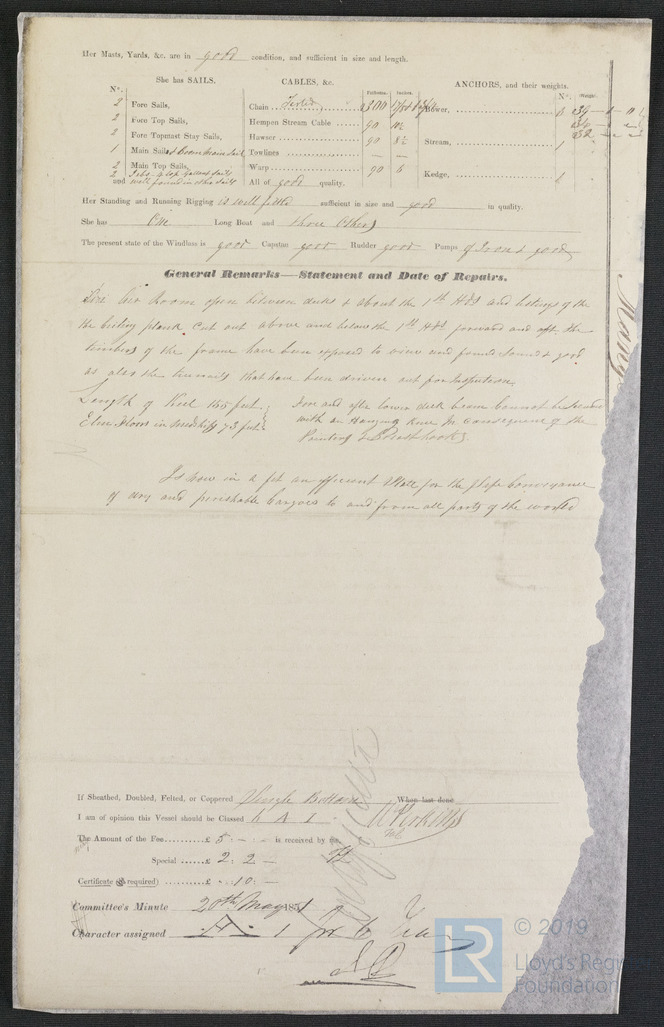 Her Masts, Yards, &c. are in good condition, and sufficient in size and length.
She has SAILS.
CABLES, &c.
ANCHORS, and their weights.
N°.
Fathoms. Inches.
N°. Weight.
2 Fore Sails,
Chain Tested 300
Bower,
2 Fore Top Sails,
Hempen Stream Cable 90 10½
2 Fore Topmast Stay Sails,
Hawser 90 8½
Stream, 1
1 Main Sails
Towlines — —
2 Main Top Sails,
Warp 90 6
Kedge,
2 Jibs & top Gallant Sails
and well found in other Sails
All of good quality.
Her Standing and Running Rigging is well fitted sufficient in size and good in quality.
She has One Long Boat and three Others
The present state of the Windlass is good Capstan good Rudder good Pumps of Iron & good
General Remarks—Statement and Date of Repairs.
Air Room open between decks & about the 1st and of the
the plank cut out above and below the 1st forward and aft. the
timbers of the frame have been exposed to view and found sound & good
as also the trunnils that have been driven out for Inspection
Length of Keel 155 feet.
Elm Floors in midships 73 feet
Fore and after lower deck beam cannot be secured
with an Hanging Knee in consequence of the
Pointers & Breasthooks
Is now in & fit an efficient State for the safe Conveyance
of dry and perishable Cargoes to and from all parts of the world
If Sheathed, Doubled, Felted, or Coppered Single Bottom When last done
I am of opinion this Vessel should be Classed 6 A 1
The Amount of the Fee £ 5 - - is received by me,
Special £ 2: 2 —
Certificate (if required) £ - 10: —
Committee's Minute 20th May 1851
Character assigned A 1 for 6 Years
LR
© 2019
Lloyd's Register
Foundation